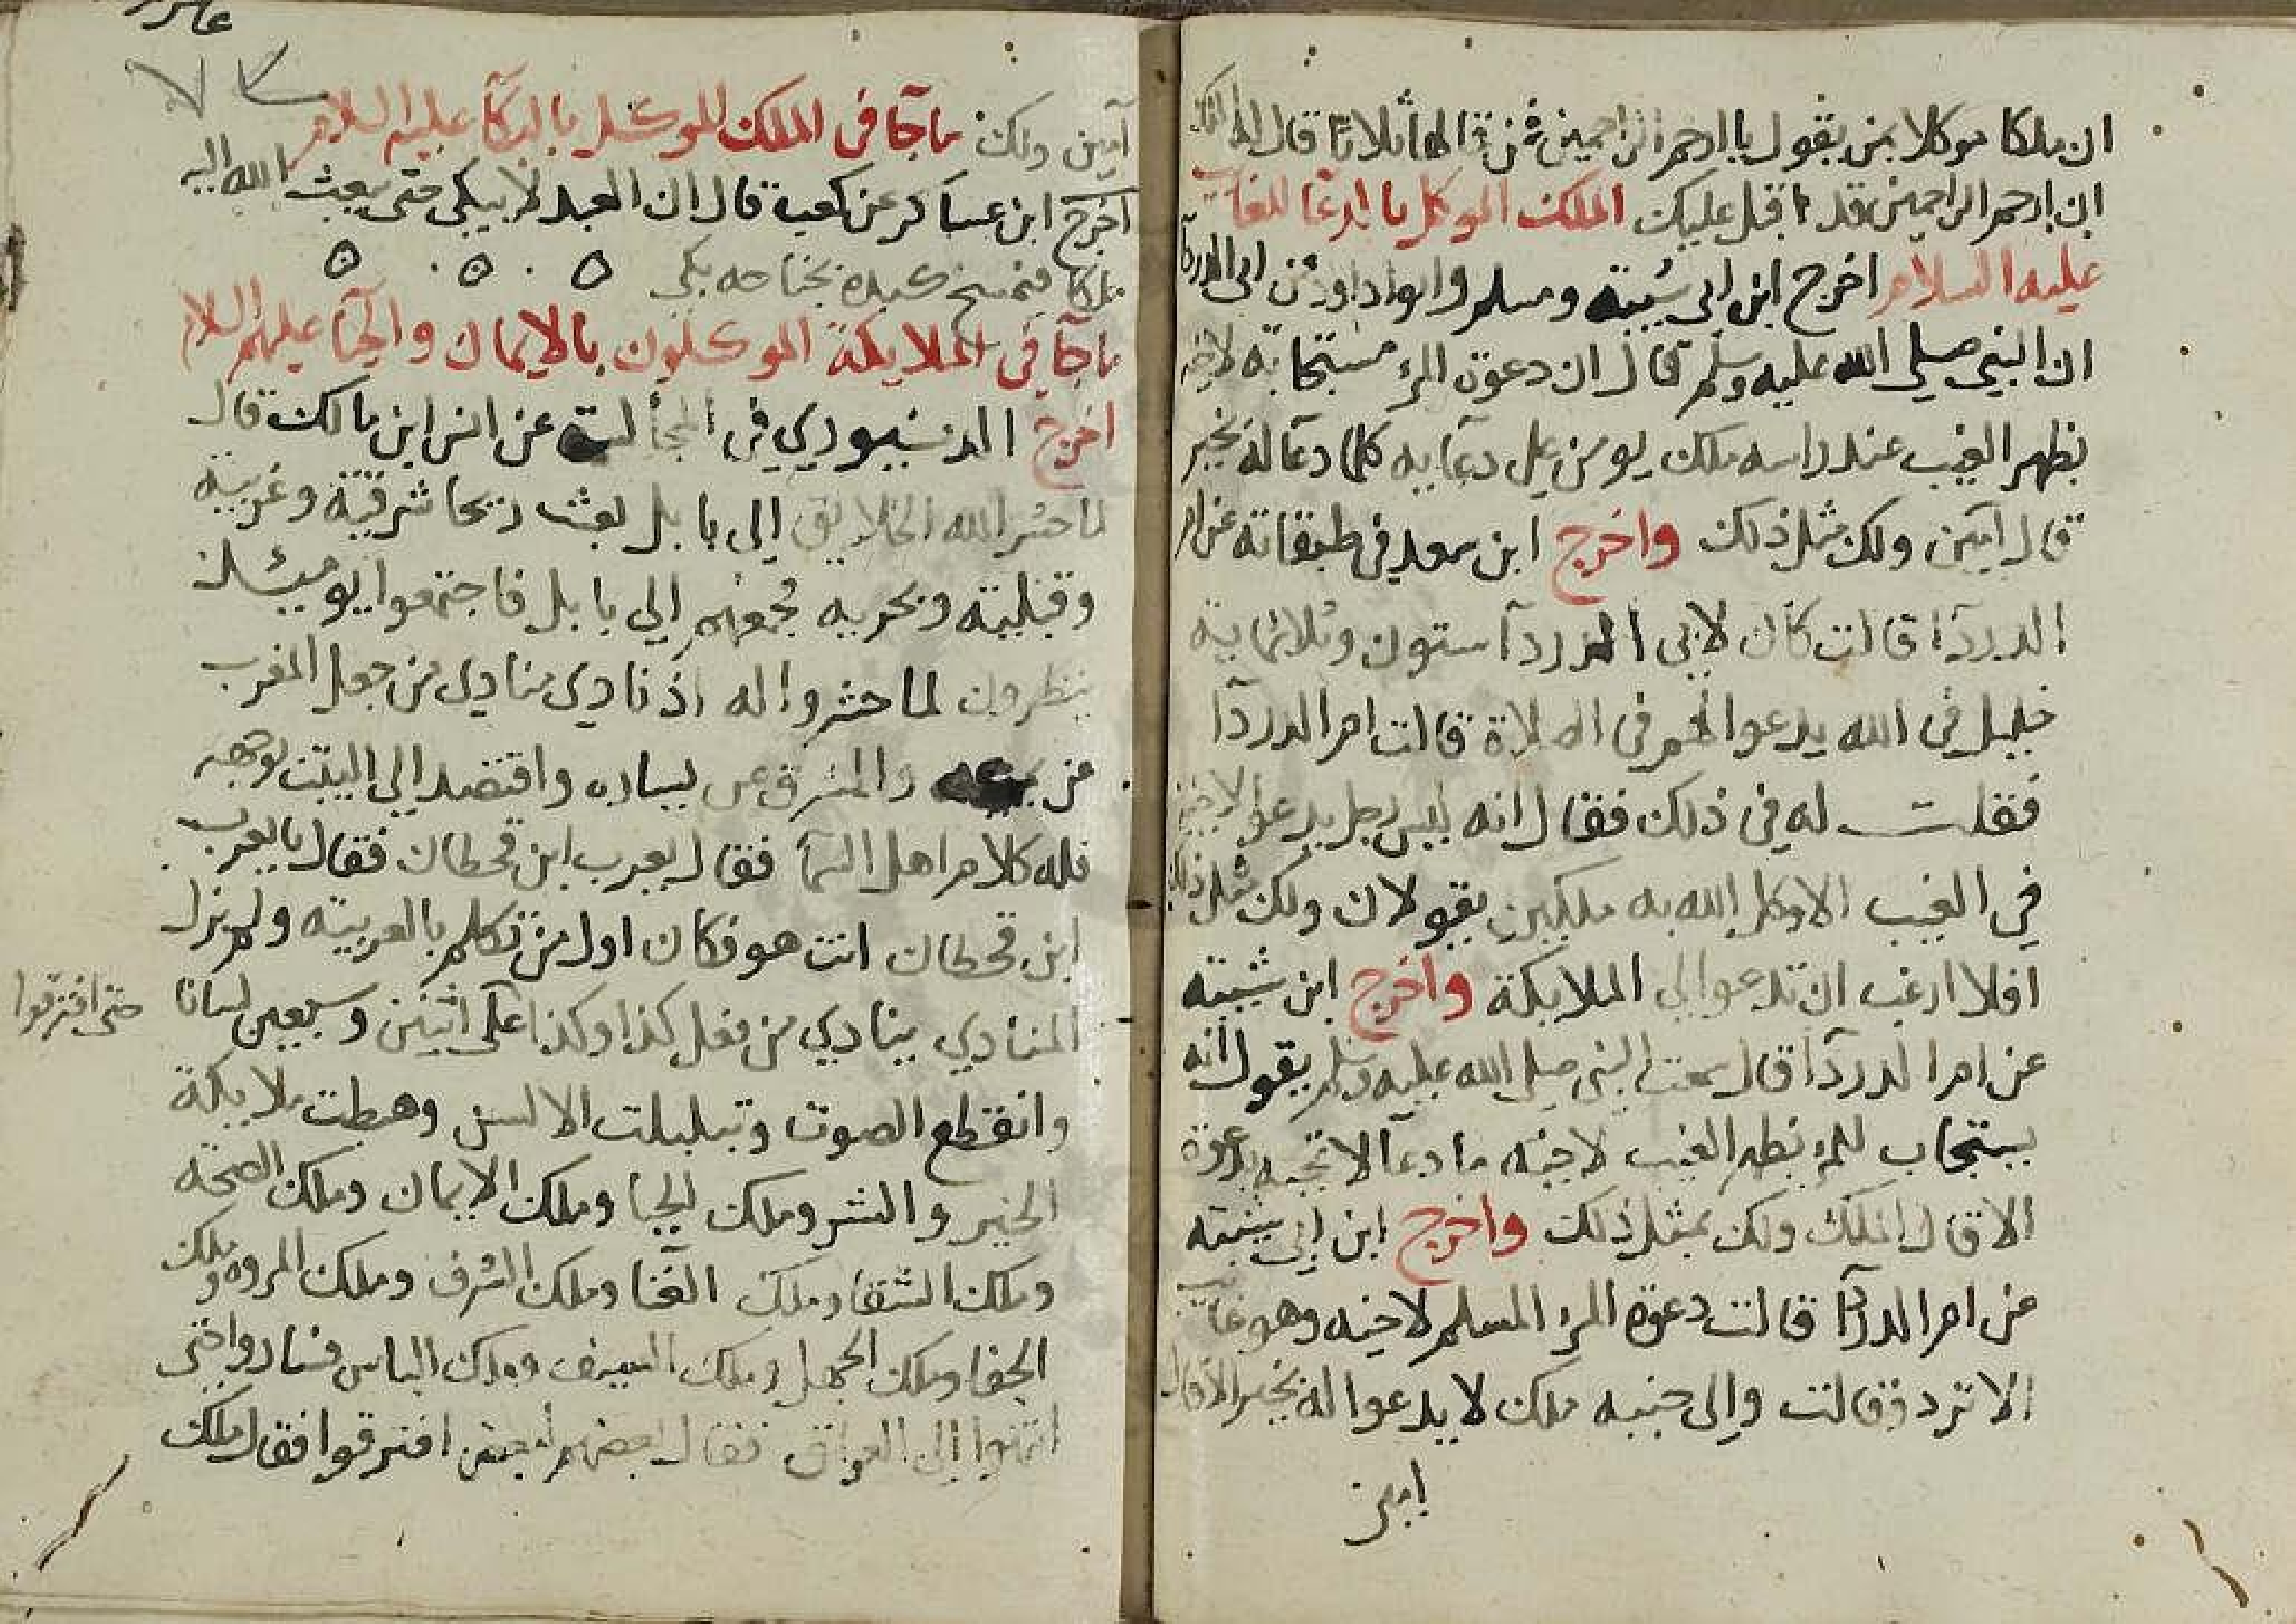 ان ملكا موكلا بمن يقول يا ارحم الراحمين فمن قالها ثلاثا قال له الملك
ان ارحم الراحمين قد اقبل عليك الملك الموكل بالدعا للغايب
عليه السلام اخرج ابن ابي شيبة ومسلم وابوا داود عن ابي الدردآ
ان النبي صلي الله عليه وسلم قال ان دعوة المرء مستجابة لاخيه
بظهر الغيب عند راسه ملك يومن علي دعايه كلما دعا له بخير
قال امين ولك مثل ذلك واخرج ابن سعد في طبقاته عن ام
الدردآ قالت كان لابي الدردآ ستون وثلاثماية
خليل في الله يدعوا لهم في الصلاة قالت ام الدردآ
فقلت له في ذلك فقال انه ليس رجل يدعوا لاخيه
في الغيب الا وكل الله به ملكين يقولان ولك مثل ذلك
افلا ارغب ان تدعوا لي الملايكة واخرج ابن شيبة
عن ام الدردآ قال سمعت النبي صلي الله عليه وسلم يقول انه
يستجاب للمرء بظهر الغيب لاخيه ما دعا لاخيه بدعوة
الا قال الملك ولك بمثل ذلك واخرج ابن ابي شيبة
عن ام الدردآ قالت دعوة المرء المسلم لاخيه وهو غايب
لا ترد وقالت والي جنبه ملك لا يدعوا له بخير الا قال
امين
٧٣
آمين ولك ماجآ في الملك الموكل بالبكآ عليهم السلام
اخرج ابن عساكر عن كعب قال ان العبد لا يبكي حتي يبعث الله اليه
ملكا فيمسح كبده بجناحه بكي ه ه ه
ماجآ في الملايكة الموكلون بالايمان والحيآ عليهم السلام
اخرج الدينيوري في المجالسة عن انس ابن مالك قال
لما حشر الله الخلايق الي بابل بعث ريحا شرقية وغربية
وقبلية وبحرية فجمعهم الي بابل فاجتمعوا يوميئذ
ينظرون لما حشروا له اذ نادي منادي من جعل المغرب
عن يمينه والمشرق عن يساره واقتصد الي البيت بوجهه
فله كلام اهل السمآ فقال يعرب ابن قحطان فقال يا يعرب
ابن قحطان انت هو فكان اول من تكلم بالعربية ولم يزل
المنادي ينادي من فعل كذا وكذا علي اثنين وسبعين لسانا
حتي افترقوا
وانقطع الصوت وتبلبلت الالسن وهبطت ملايكة
الخير والشر وملك الحيا وملك الايمان وملك الصحة
وملك الشقا وملك الغنا وملك الشرف وملك المروه وملك
الجفا وملك الجهل وملك السيف وملك الباس فساروا حتي
انتهوا الي العراق فقال بعضهم لبعض افترقوا فقال ملك